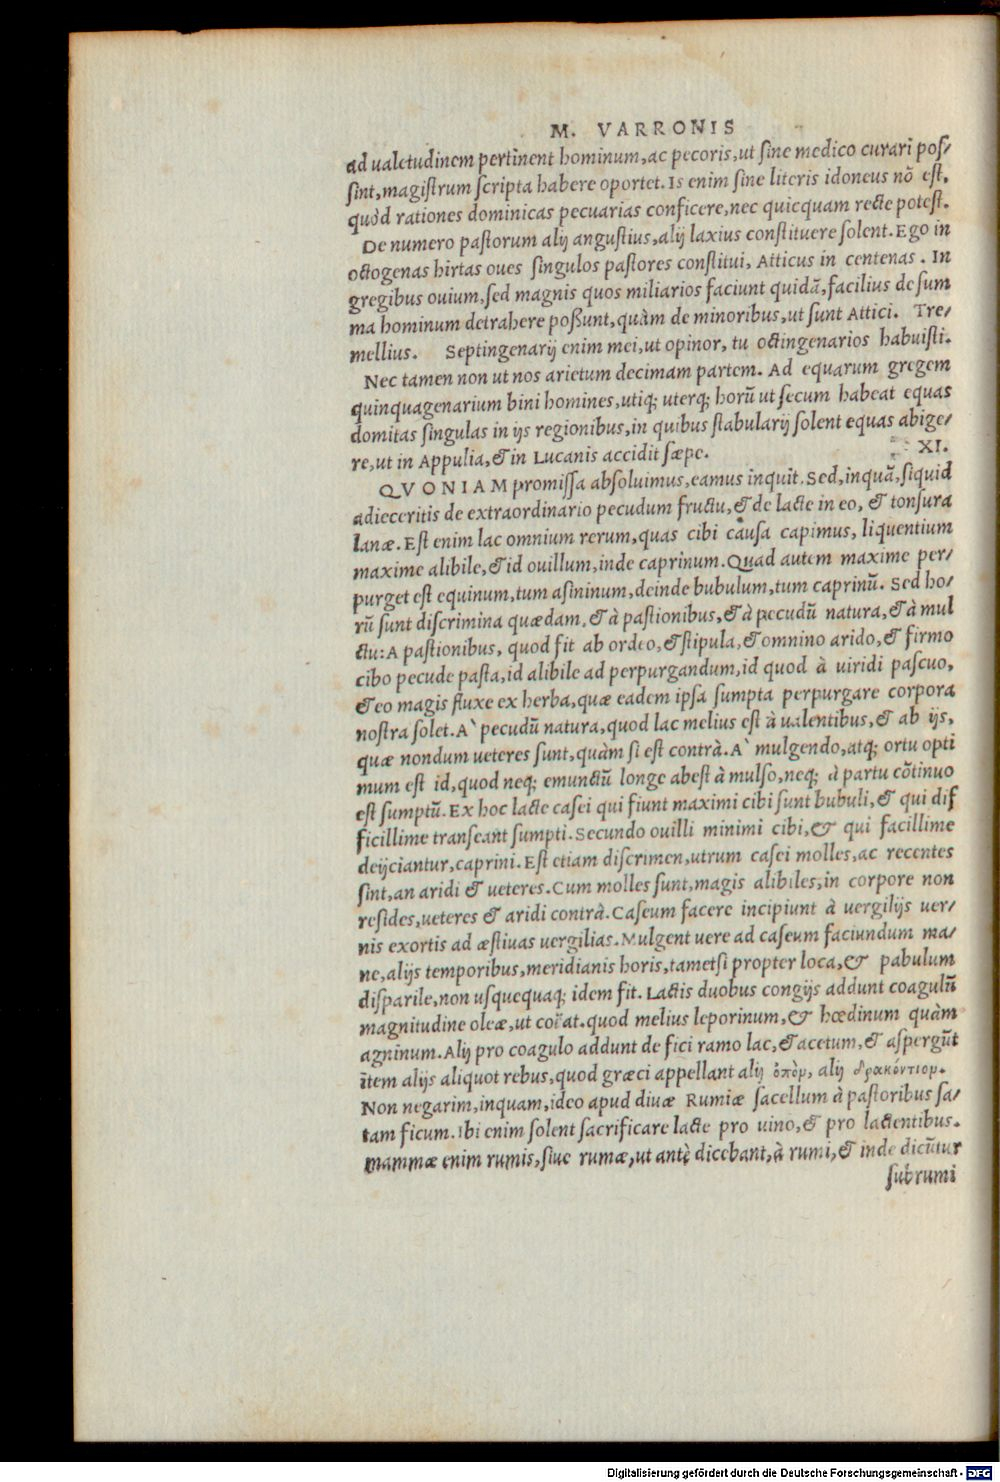 M. VARRONIS
ad ualetudinem pertinent hominum, ac pecoris, ut sine medico curari pos/
sint, magistrum scripta habere oportet. Is enim sine literis idoneus nõ est,
quòd rationes dominicas pecuarias conficere, nec quicquam recte potest.
De numero pastorum alij angustius, alij laxius constituere solent. Ego in
octogenas hirtas oues singulos pastores constitui, Atticus in centenas. In
gregibus ouium, sed magnis quos miliarios faciunt quidã, facilius de sum
ma hominum detrahere poßunt, quàm de minoribus, ut sunt Attici. Tre/
mellius. Septingenarij enim mei, ut opinor, tu octingenarios habuisti.
Nec tamen non ut nos arietum decimam partem. Ad equarum gregem
quinquagenarium bini homines, utiq; uterq; horũ ut secum habeat equas
domitas singulas in ijs regionibus, in quibus stabularij solent equas abige/
re, ut in Appulia, & in Lucanis accidit sæpe. XI.
QVONIAM promissa absoluimus, eamus inquit. Sed, inquã, siquid
adieceritis de extraordinario pecudum fructu, & de lacte in eo, & tonsura
lanæ. Est enim lac omnium rerum, quas cibi causa capimus, liquentium
maxime alibile, & id ouillum, inde caprinum. Quad autem maxime per/
purget est equinum, tum asininum, deinde bubulum, tum caprinũ. Sed ho/
rũ sunt discrimina quædam, & à pastionibus, & à pecudũ natura, & à mul
ctu: A pastionibus, quod fit ab ordeo, & stipula, & omnino arido, & firmo
cibo pecude pasta, id alibile ad perpurgandum, id quod à uiridi pascuo,
& eo magis fluxe ex herba, quæ eadem ipsa sumpta perpurgare corpora
nostra solet. A` pecudũ natura, quod lac melius est à ualentibus, & ab ijs,
quæ nondum ueteres sunt, quàm si est contrà. A` mulgendo, atq; ortu opti
mum est id, quod neq; emunctũ longe abest à mulso, neq; à partu cõtinuo
est sumptũ. Ex hoc lacte casei qui fiunt maximi cibi sunt bubuli, & qui dif
ficillime transeant sumpti. Secundo ouilli minimi cibi, & qui facillime
deijciantur, caprini. Est etiam discrimen, utrum casei molles, ac recentes
sint, an aridi & ueteres. Cum molles sunt, magis alibiles, in corpore non
resides, ueteres & aridi contrà. Caseum facere incipiunt à uergilijs uer/
nis exortis ad æstiuas uergilias. Mulgent uere ad caseum faciundum ma/
ne, alijs temporibus, meridianis horis, tametsi propter loca, & pabulum
disparile, non usquequaq; idem fit. Lactis duobus congijs addunt coagulũ
magnitudine oleæ, ut coëat. quod melius leporinum, & hœdinum quàm
agninum. Alij pro coagulo addunt de fici ramo lac, & acetum, & aspergũt
item alijs aliquot rebus, quod græci appellant alij ὀπὸμ, alij δρακόντιομ.
Non negarim, inquam, ideo apud diuæ Rumiæ sacellum à pastoribus sa/
tam ficum. Ibi enim solent sacrificare lacte pro uino, & pro lactentibus.
mammæ enim rumis, siue rumæ, ut antè dicebant, à rumi, & inde dicũtur
subrumi
Digitalisierung gefördert durch die Deutsche Forschungsgemeinschaft - DFG